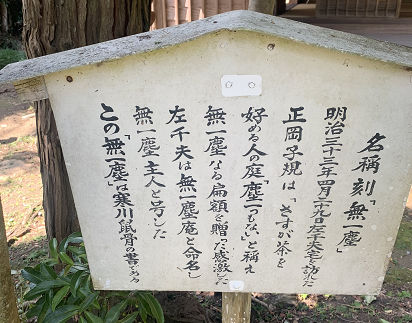 名稱刻「無一塵」
明治三十三年四月二十九日左千夫宅を訪ねた
正岡子規は「さすが茶を
好める人の庭「塵一つもない」と稱え
無一塵なる扁額を贈った感激した
左千夫は無一塵庵と命名し
無一塵主人と号した
この「無一塵」は寒川鼠骨の書である